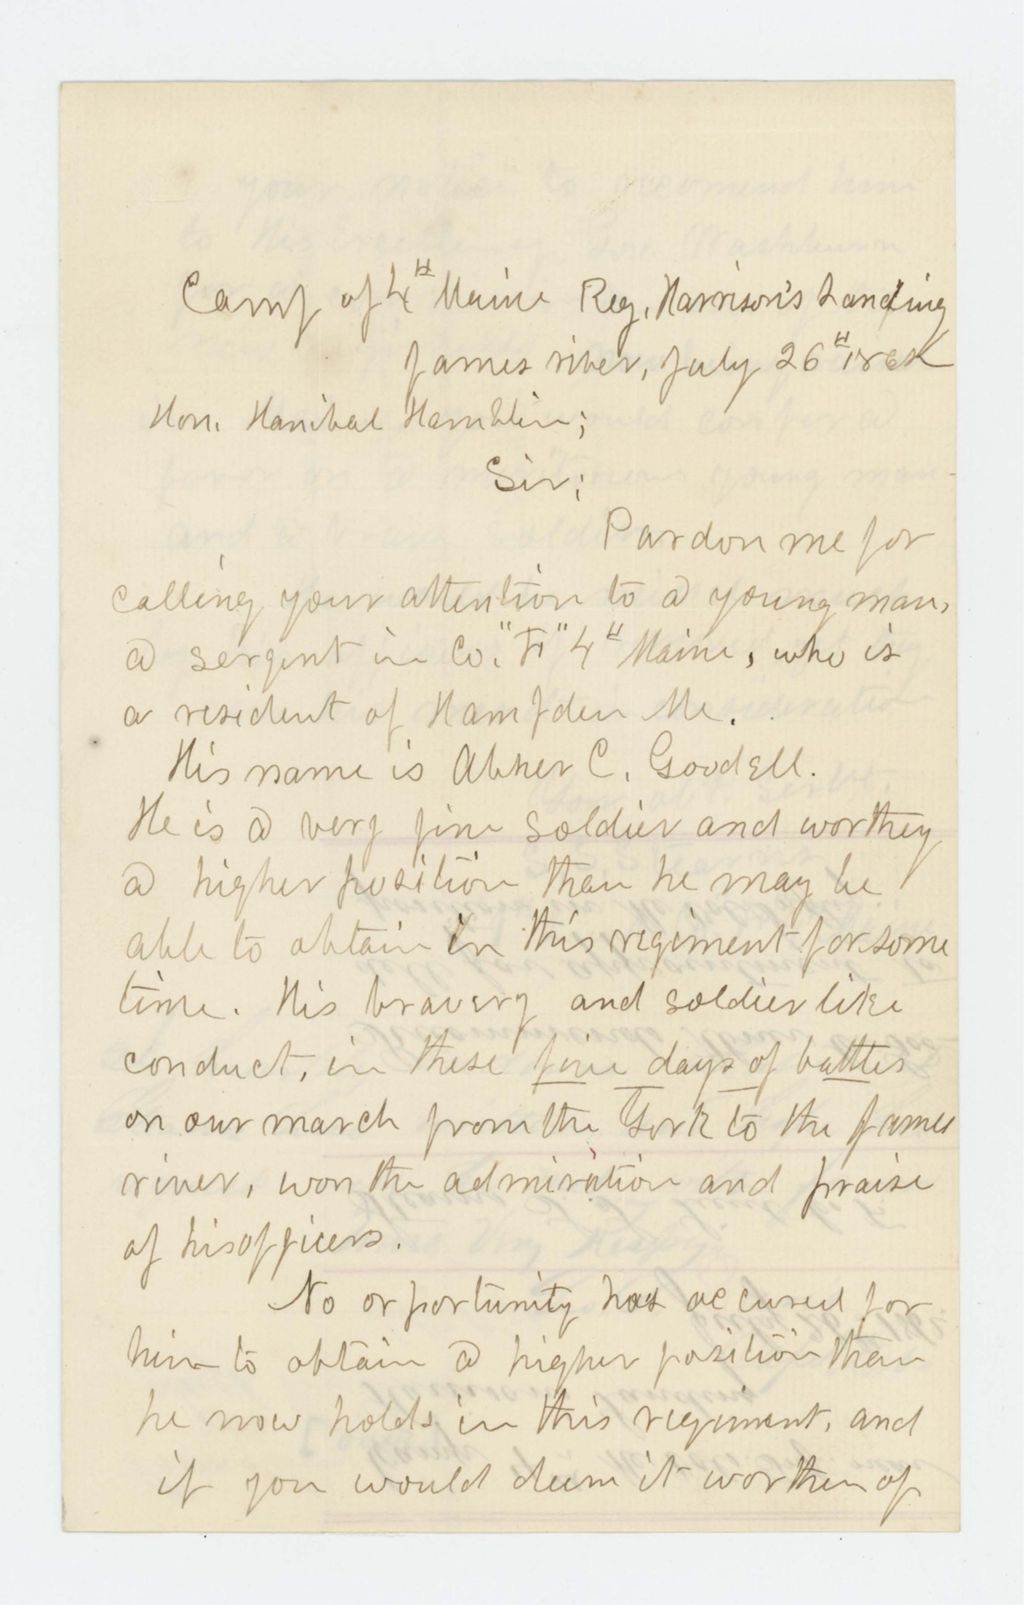 Camp of 4th Maine Reg, Harrison's Landing
James river, July 26th 1862
Hon. Hanibal Hamblin;
Sir;
Pardon me for
calling your attention to a young man,
a sergent in Co. "F" 4th Maine, who is
a resident of Hampden Me.
His name is Abner C. Goodell.
He is a very fine soldier and worthey
a higher position than he may be
able to obtain in this regiment for some
time. His bravery and soldier like
conduct, in these five days of battles
on our march from the York to the James
river, won the admiration and praise
of his officers.
No opportunity has occured for
him to obtain a higher position than
he now holds in this regiment, and
if you would deem it worthey of